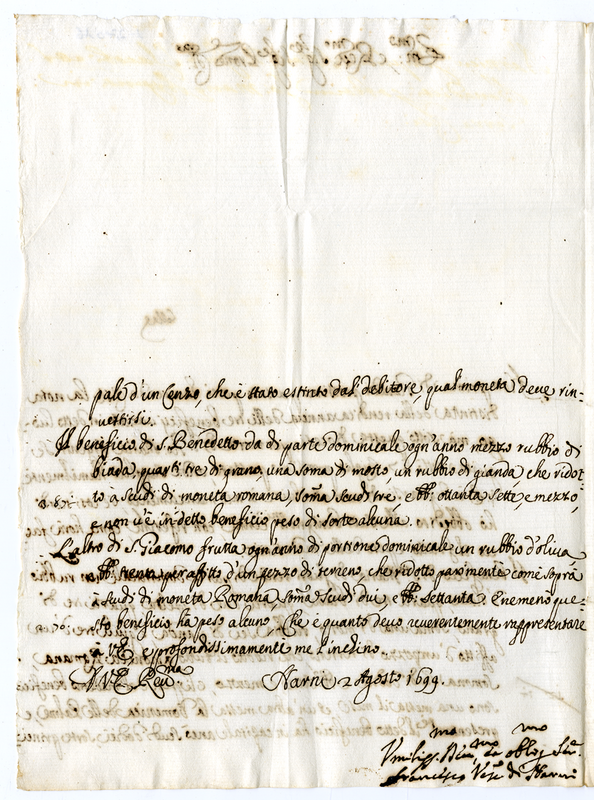 pale d'un Censo, che è stato estinto dal debitore, qual moneta deve rin-
vestirsi.
Il beneficio di S. Benedetto dà di parte dominicale ogn'anno mezzo rubbio di
biada, quarti tre di grano, una soma di mosto, un rubbio di gianda che ridot-
to a scudi di moneta romana, somã scudi tre, e bb: ottanta sette, e mezzo,
e non v'è in detto beneficio peso di sorte alcuna.
L'altro di S. Giacomo frutta ogn'anno di portione dominicale un rubbio d'oliva,
bb: per affitto d'un pezzo di terreno, che ridotto parimente come soprà
à scudi di moneta Romana, somã scudi dui, e bb: settanta. E nemeno que-
sto beneficio hà peso alcuno. Che è quanto devo reverentemente rappresentare
à V.E. e profondissimamente me l'inchino.
D.V.E. Rev.ma Narni 2 Agosto 1699.
Francesco Vesc.o di Narni